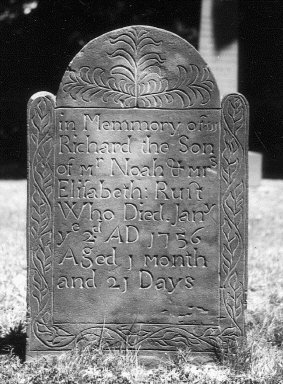 in Memmory of
Richard the Son
of mr Noah & mrs
Elisabeth Rust
Who Died Janry
ye 2d AD 1756
Aged 1 month
and 21 Days